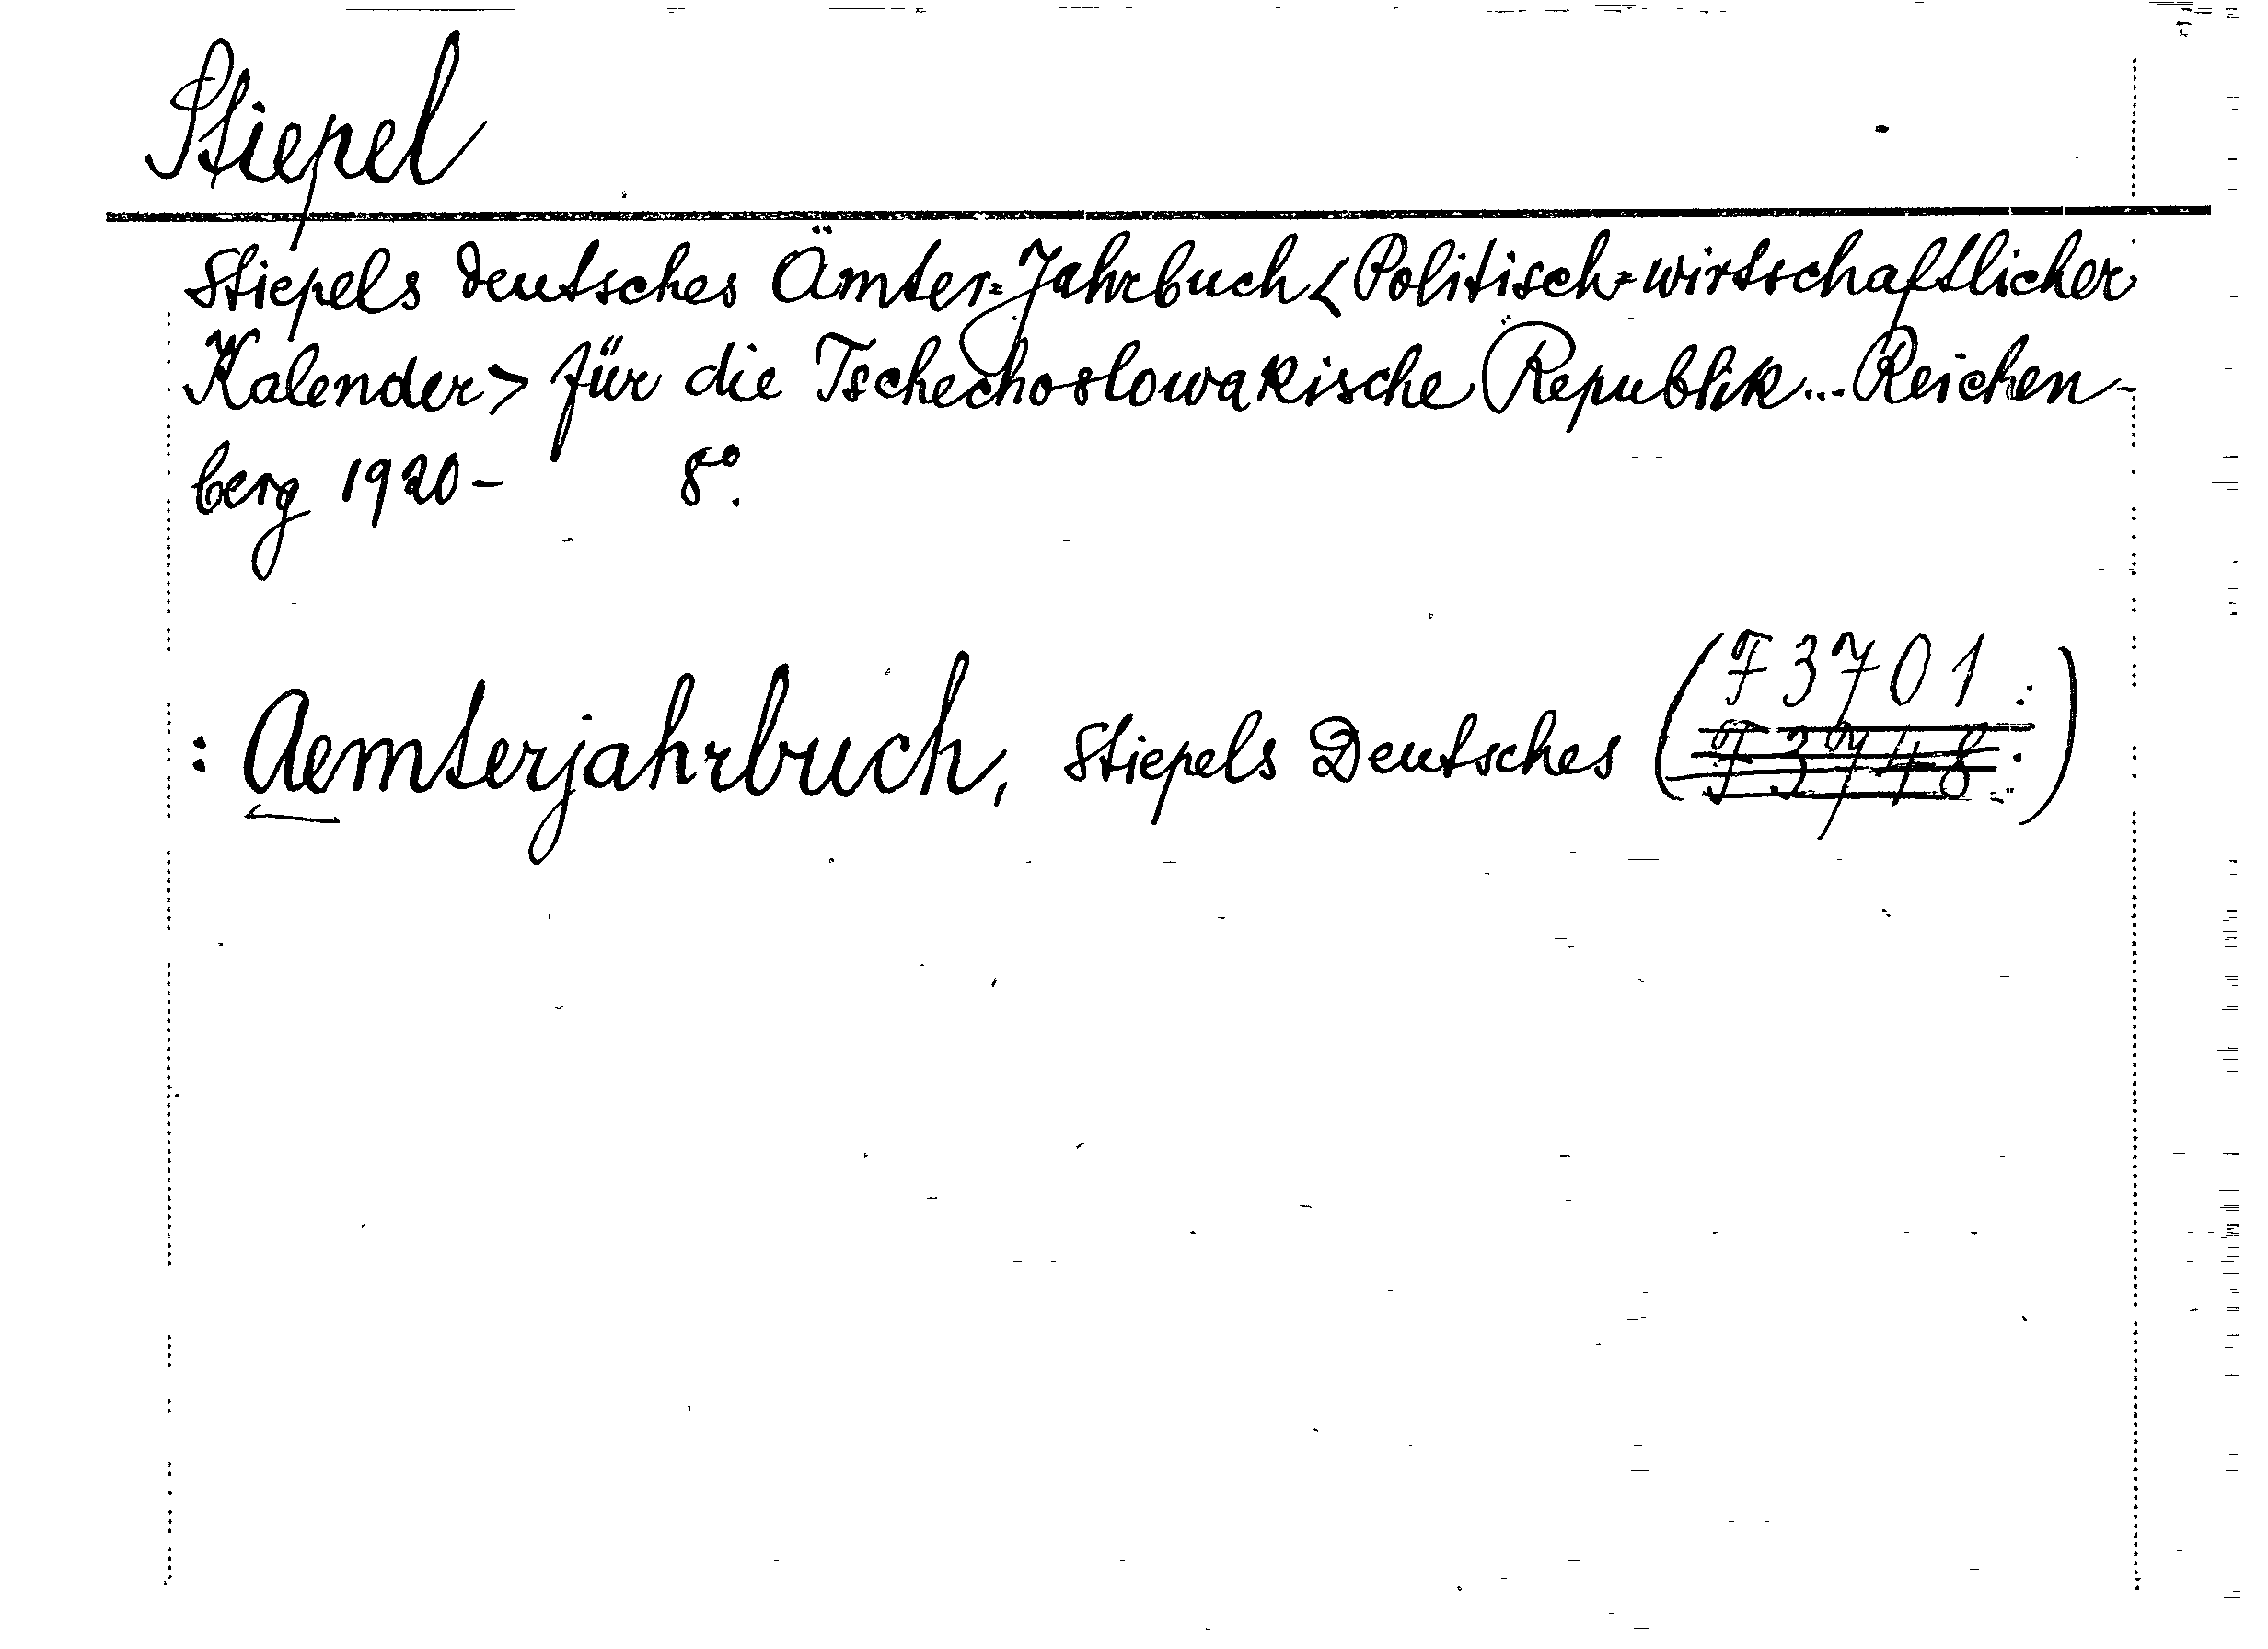 Stiepel
Stiepels deutsches Ämter=Jahrbuch <Politisch-wirtschaftlicher
Kalender> für die Tschechoslowakische Republik... Reichen-
berg 1920- 8°.
: Aemterjahrbuch, Stiepels Deutsches (F 3701 :
F 3748 :)